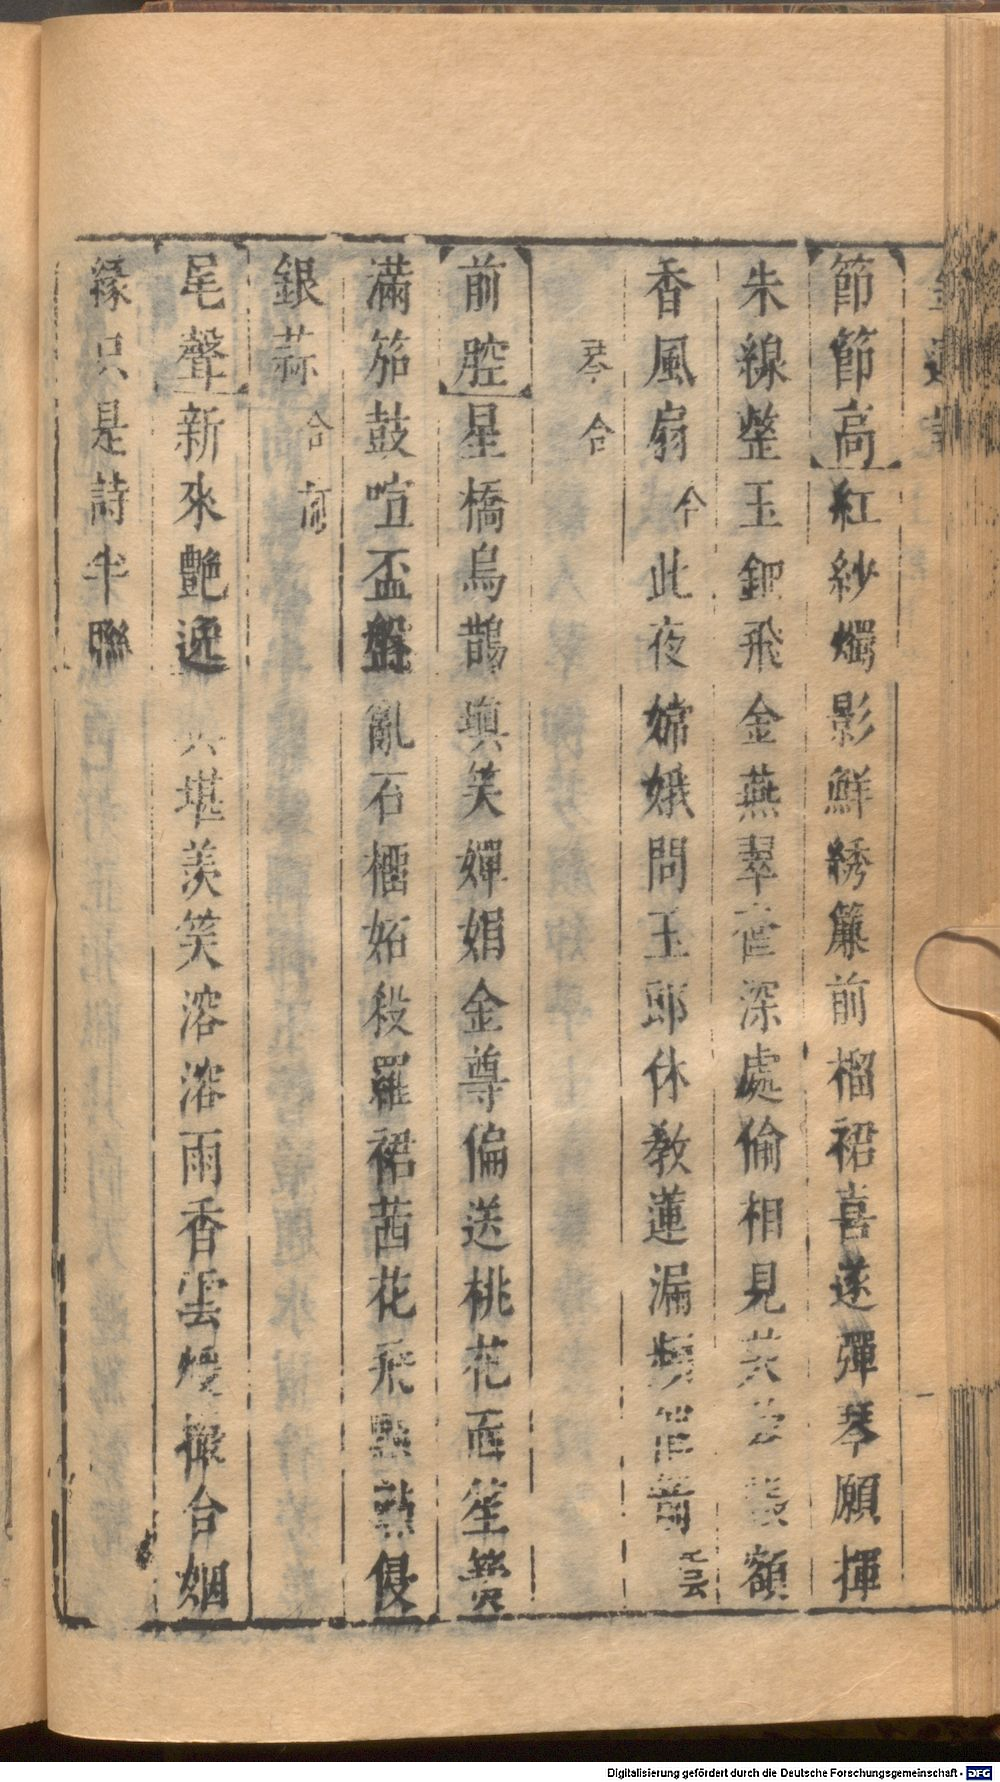 節節高紅紗燭影鮮綉簾前榴裙喜逐彈琴願揮
朱線整玉鈿飛金燕翠深處偷相見芙額
香風扇合此夜嫦娥問玉郎休教蓮漏頻催箭
琴合
前腔星橋烏鵲塡笑嬋娟金尊偏送桃花面笙簧
滿笳鼓喧盃盤亂石榴妬殺羅裙茜花飛點㸃侵
銀蒜合前
尾聲新來艷堪羨笑溶溶雨香雲煖撮合姻
緣只是詩半聯
Digitalisierung gefördert durch die Deutsche Forschungsgemeinschaft - DFG